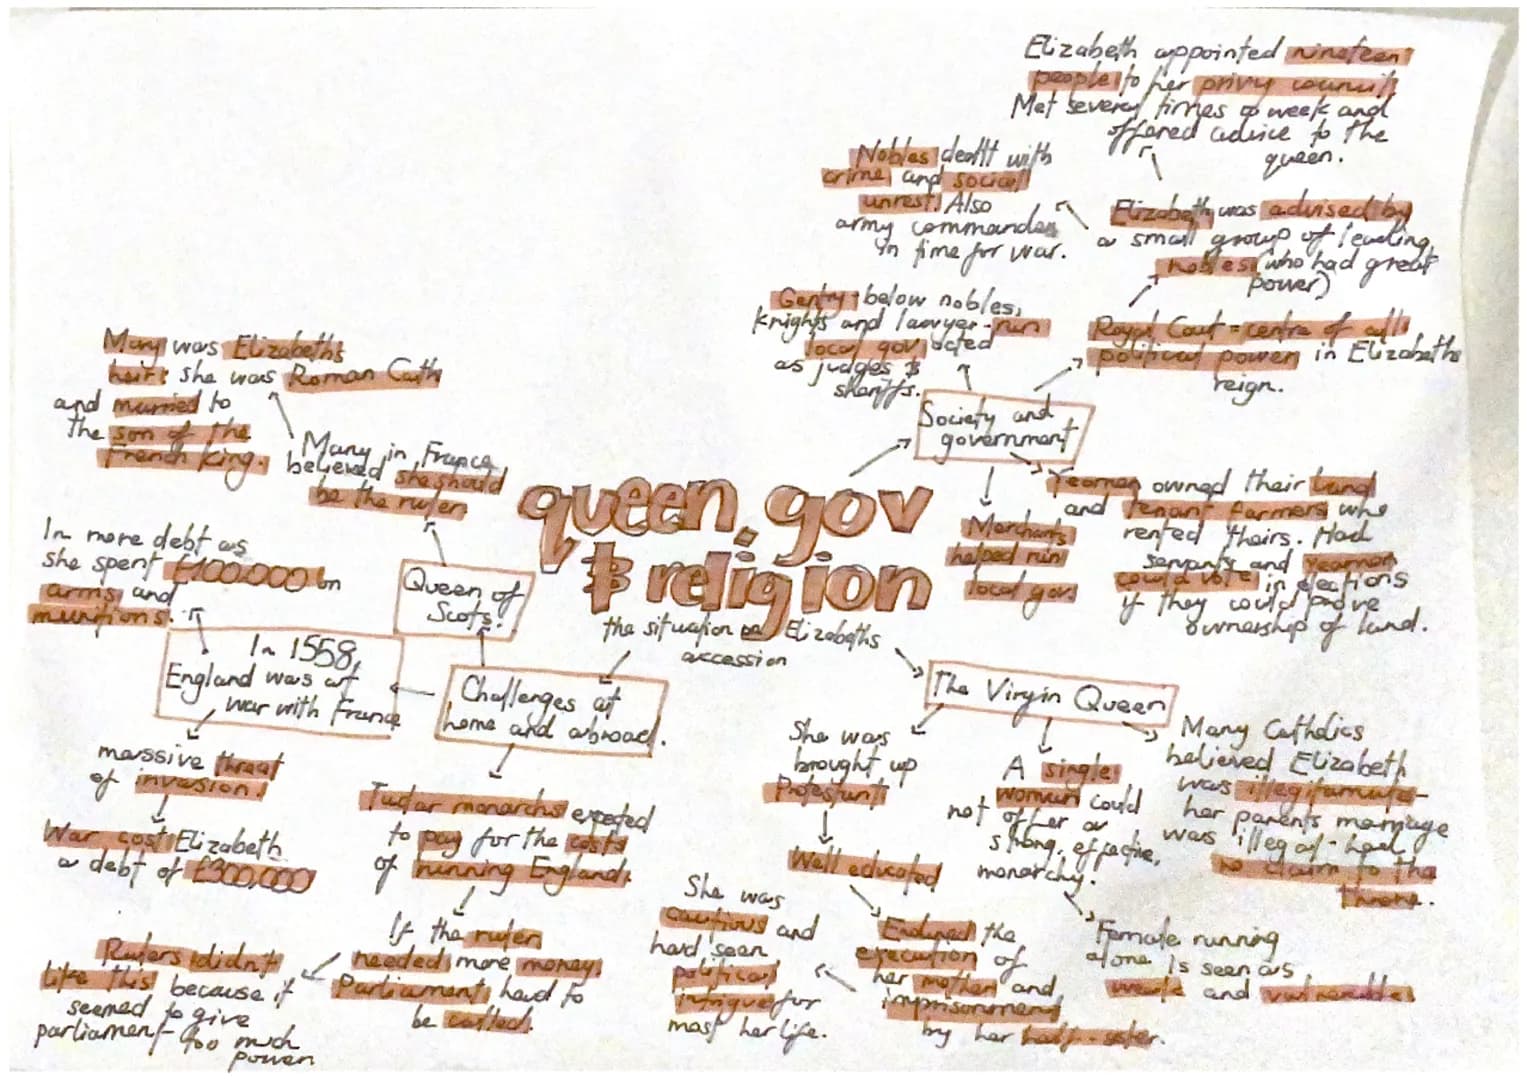 Elizabeth appointed nineteen
people to her privy council
Met severy times a week and
offered advice to the
queen.
Nobles dealt with
crime and social
unrest. Also
army commanders
in time for war.
Elizabeth was advised by
a small group of leading
nobles (who had great
power)
Gentry - below nobles,
knights and lawyer - run
local gov acted
as judges &
shariffs.
Royal Court = centre of all
political power in Elizabeths
reign.
Society and
government
Yeoman owned their land
and tenant farmers who
rented theirs. Had
servants and yeoman
could vote in elections
if they could prove
ownership of land.
Merchants
helped run
local gov.
queen, gov
& religion
the situation on Elizabeths
accession
Mary was Elizabeths
heir: she was Roman Cath
and married to
the son of the
French King.
Many in France
believed she should
be the ruler.
Queen of
Scots!
In more debt as
she spent £100.000 on
arms and
munitions.
In 1558,
England was at
war with France
Challenges at
home and abroad.
massive threat
of invasion!
War cost Elizabeth
a debt of £300.000
Tudar monarchs expected
to pay for the costs
of running England.
If the ruler
needed more money,
Parliament had to
be called.
Rulers didn't
like this because it
seemed to give
parliament too much
power
The Virgin Queen
She was
brought up
Protestant
Well educated
Endured the
execution of
her mother and
imprisonment
by her half-sister.
She was
cautious and
had seen
political
intrigue for
most her life.
A single
woman could
not offer a
strong, effective,
monarchy.
Female running
alone is seen as
weak and vulnerable
Many Catholics
believed Elizabeth
was illegitamate -
her parents marriage
was illegal - had
no claim to the
throne.